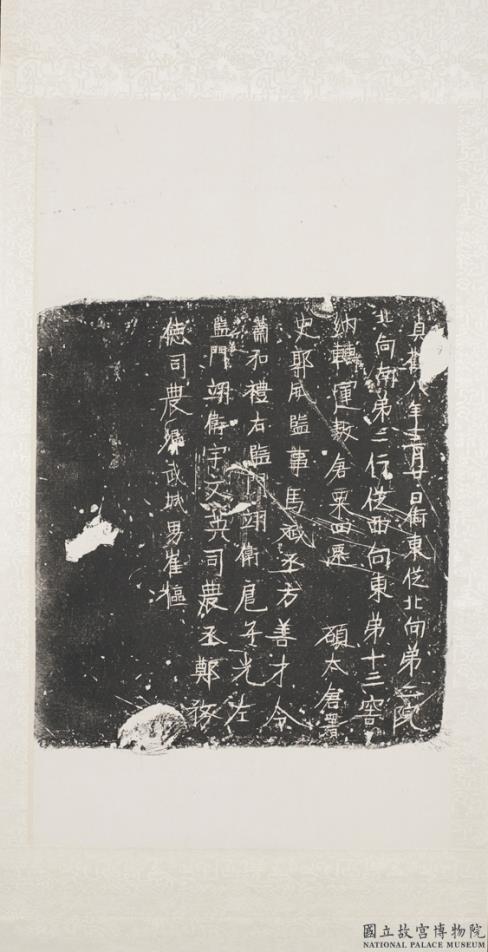 貞觀八年十二月廿日街東從北向第二院
北向南第二行從西向東第十三窖
納轉運敖倉粟四 碩太倉署
史郭威監事馬 丞方善才令
蕭和禮右監門翊衛 子光左
監門翊衛宇文英司農丞鄭
德司農卿武城男崔樞
國立故宮博物院
NATIONAL PALACE MUSEUM